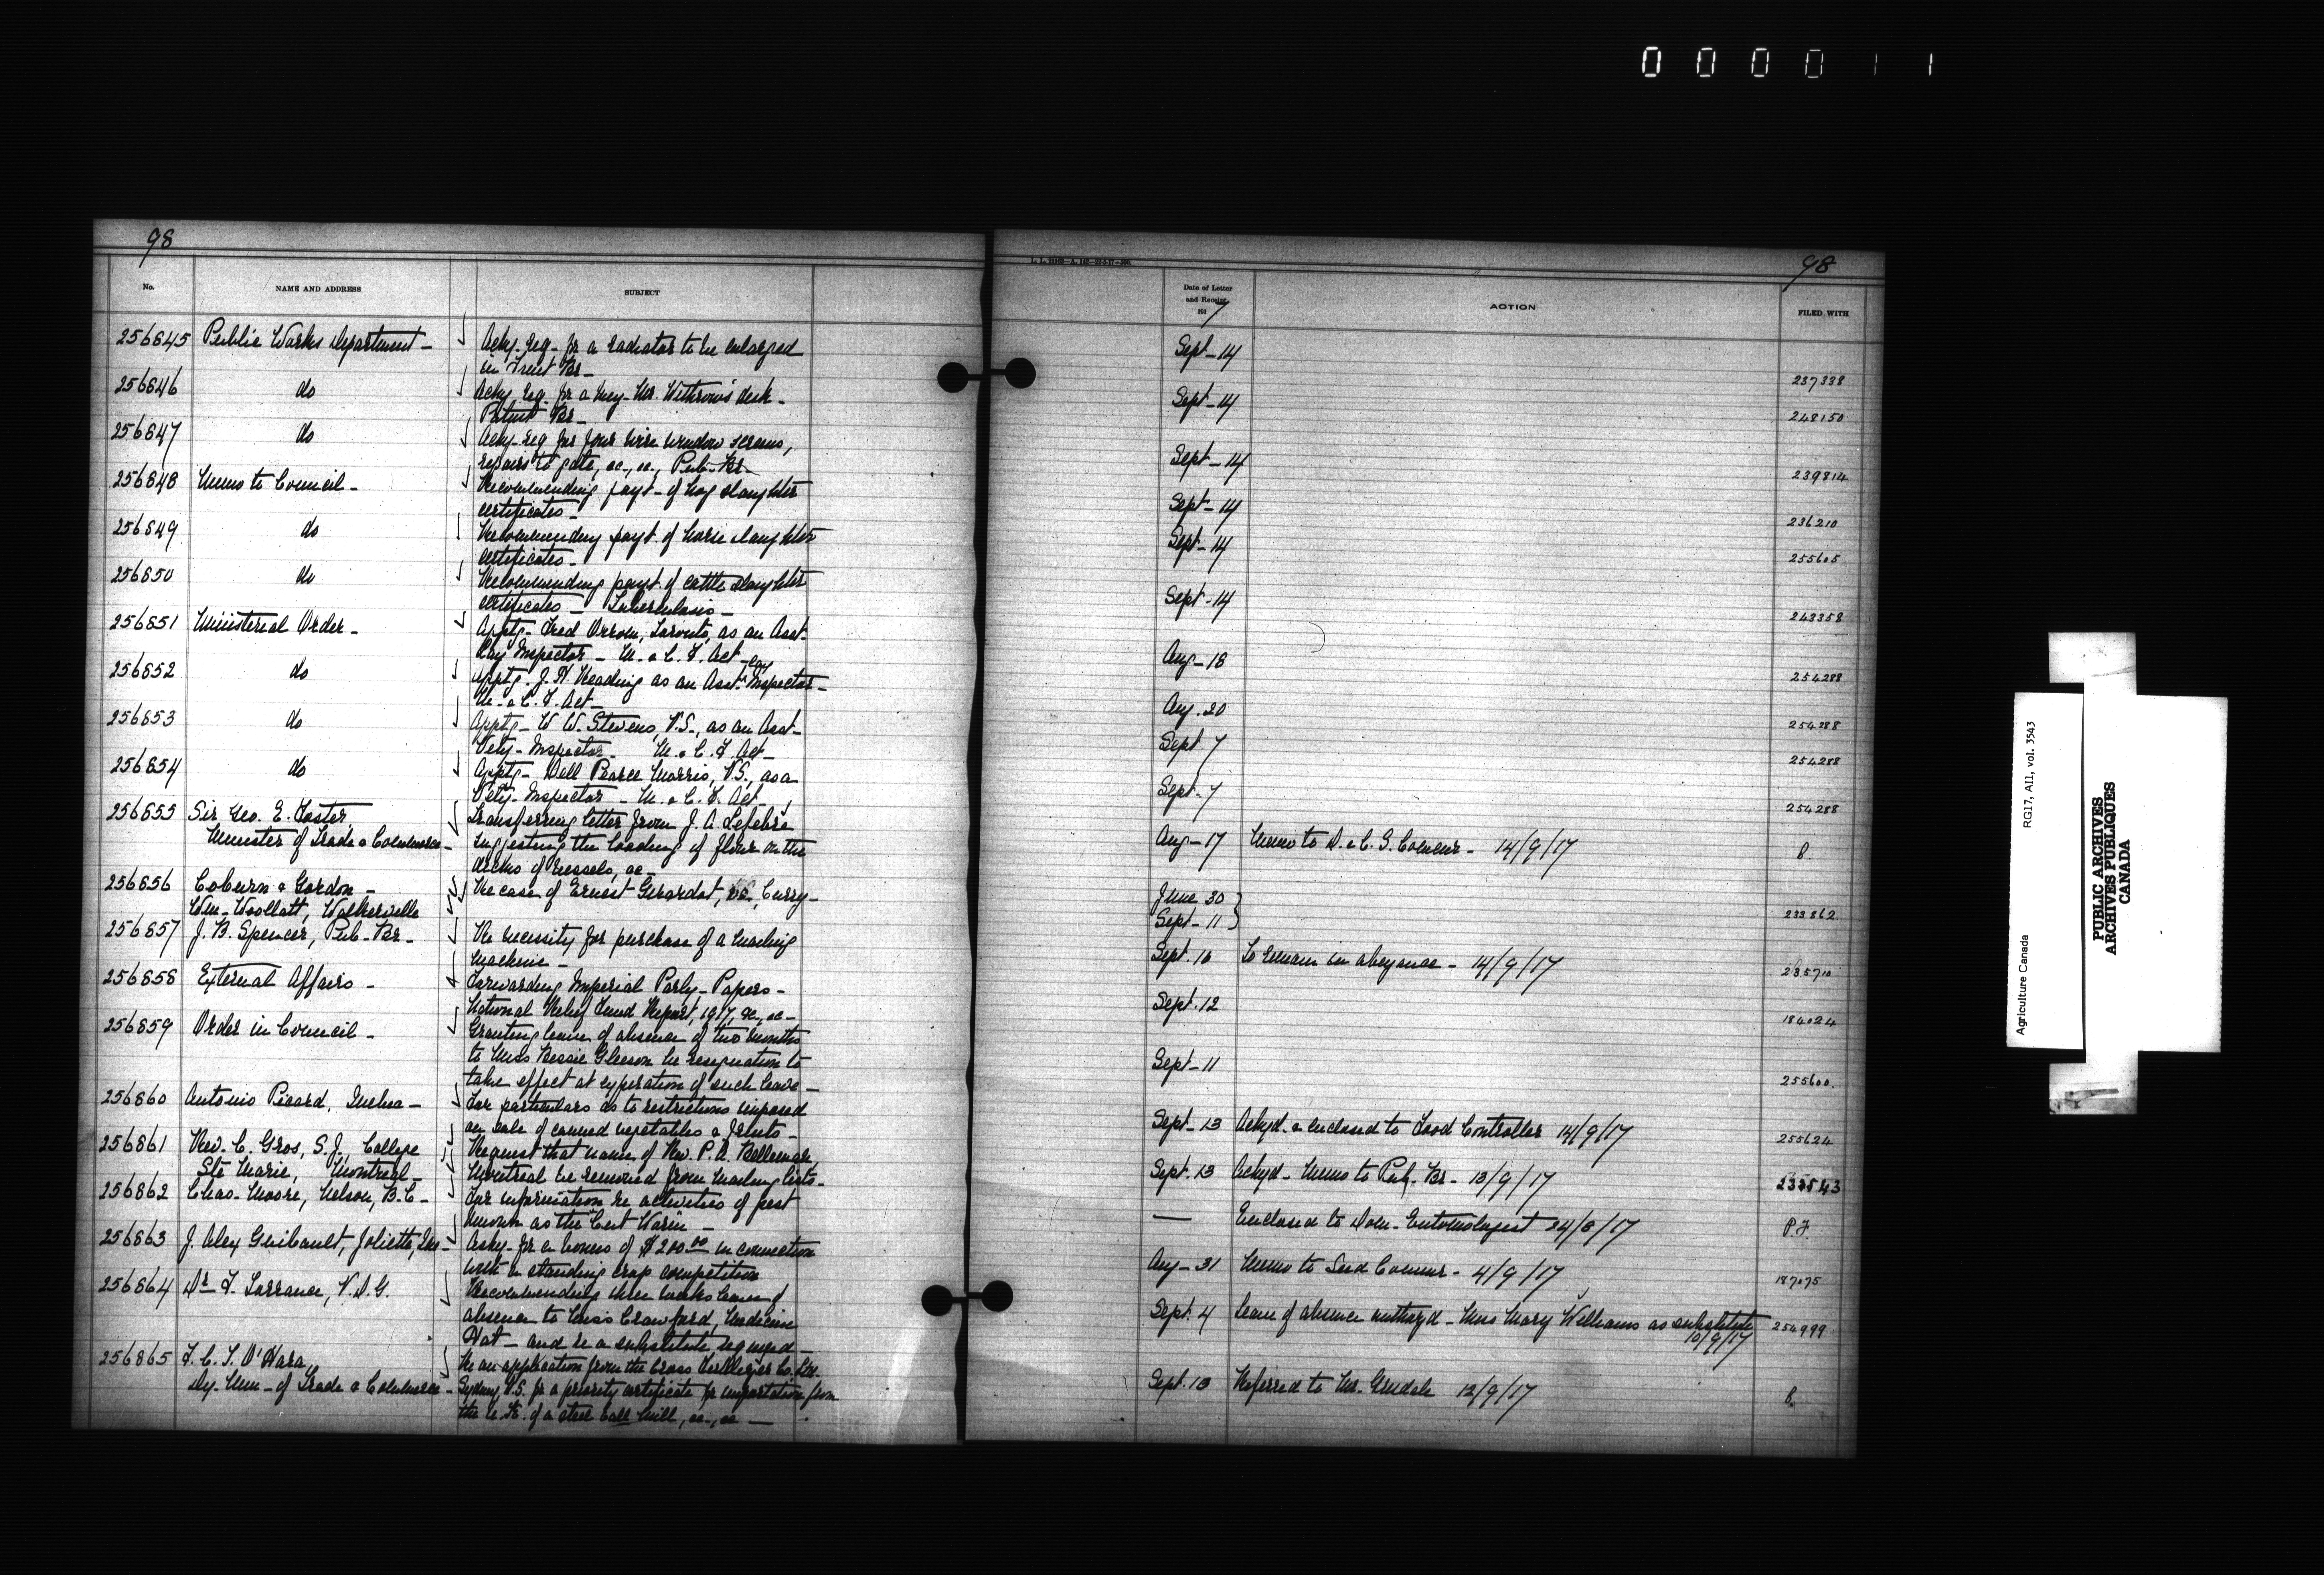 000011
98
No.
NAME AND ADDRESS
SUBJECT
256845 Public Works Department -
Ackg. req. for a radiator to be enlarged
in Fruit Br -
256846 do
Ackg. req. for a key - Mr. Withrow's desk -
Patent Br -
256847 do
Ackg. req for four wire window screens,
repairs to gate, &c., &c., Pub. Br -
256848 Memo to Council -
Recommending payt - of hog slaughter
certificates -
256849 do
Recommending payt. of horse slaughter
certificates -
256850 do
Recommending payt. of cattle slaughter
certificates - Tuberculosis -
256851 Ministerial Order -
Apptg - Fred Orrom, Toronto, as an Asst.
Lay Inspector - M. & C. F. Act -
256852 do
Apptg. J. H. Reading as an Asst. Lay Inspector -
M. & C. F. Act -
256853 do
Apptg - W. W. Stevens, V.S., as an Asst -
Vety - Inspector - M. & C. F. Act -
256854 do
Apptg - Dell Pearce Morris, V.S., as a
Vety - Inspector - M. & C. F. Act -
256855 Sir Geo. E. Foster,
Minister of Trade & Commerce -
Transferring letter from J. A. Lefebre
suggesting the loading of flour on the
decks of vessels, &c -
256856 Coburn & Gordon -
Wm - Woollatt, Walkerville
Re case of Ernest Girardot, vs., Curry -
256857 J. B. Spencer, Pub - Br -
Re necessity for purchase of a mailing
machine -
256858 External Affairs -
Forwarding Imperial Parly - Papers -
National Relief Fund Report, 1917, &c., &c -
256859 Order in Council -
Granting leave of absence of two months
to Miss Bessie Gleeson her resignation to
take effect at expiration of such leave -
256860 Antonio Picard, Quebec -
For particulars as to restrictions imposed
on sale of canned vegetables & fruits -
256861 Rev. C. Gros, S.J., College
Ste Marie, Montreal -
Request that name of Rev. P. A. Bellemare,
Montreal be removed from mailing lists -
256862 Chas. Moore, Nelson, B.C -
For information re activities of pest
known as the "Cut Worm" -
256863 J. Alex Guibault, Joliette, Que -
Askg - for a bonus of $200.00 in connection
with a standing crop competition
256864 Dr. F. Torrance, V.D.G.
Recommending three weeks leave of
absence to Miss Crawford, Medicine
Hat - and re a substitute required -
256865 F. C. T. O'Hara,
Dy - Min - of Trade & Commerce -
Re an application from the Cross Fertilizer Co. Ltd.
Sydney, N.S. for a priority certificate for importation from
the U.K. of a steel ball mill, &c., &c -
98
Date of Letter
and Receipt
191 7
ACTION
FILED WITH
Sept - 14 237338
Sept - 14 248150
Sept - 14 239814
Sept - 14 236210
Sept - 14 255605
Sept - 14 243358
Aug - 18 254288
Aug. 20 254288
Sept 7 254288
Sept - 7 254288
Aug - 17 Memo to D. & C. S. Commr - 14/9/17
June 30
Sept - 11 233862
Sept. 10 To remain in abeyance - 14/9/17 235710
Sept. 12 184024
Sept - 11 255600
Sept - 13 Ackgd. & enclosed to Food Controller 14/9/17 255624
Sept. 13 Ackgd - Memo to Pub. Br - 13/9/17 233543
— Enclosed to Dom - Entomologist 24/8/17 P.F.
Aug - 31 Memo to Seed Commr - 4/9/17 187075
Sept. 4 Leave of absence authorzd - Miss Mary Williams as substitute
10/9/17 254999
Sept. 10 Referred to Mr. Grisdale 12/9/17
Agriculture Canada RG17, A11, vol. 3543
PUBLIC ARCHIVES
ARCHIVES PUBLIQUES
CANADA